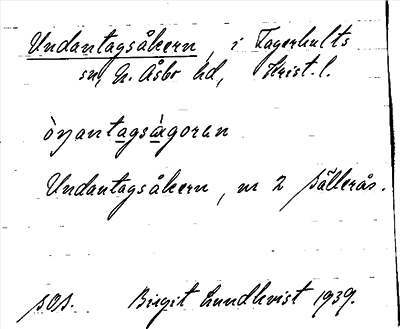 Undantagsåkern, i Fagerhults
sn, N. Åsbo hd, Krist. l.
òŋantagsàgoran
Undantagsåkern, nr 2
sos. Birgit Lundkvist 1939.